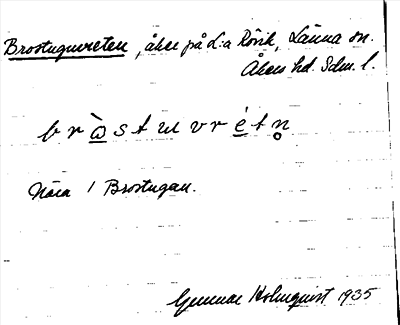 Brostuguvreten, åker på L:a Rövik, Länna sn.
Åkers hd. Sdm. l.
b r ò̲ s t u v r é̲ t n̥
Nära / Brostugan.
Gunnar Holmquist 1935